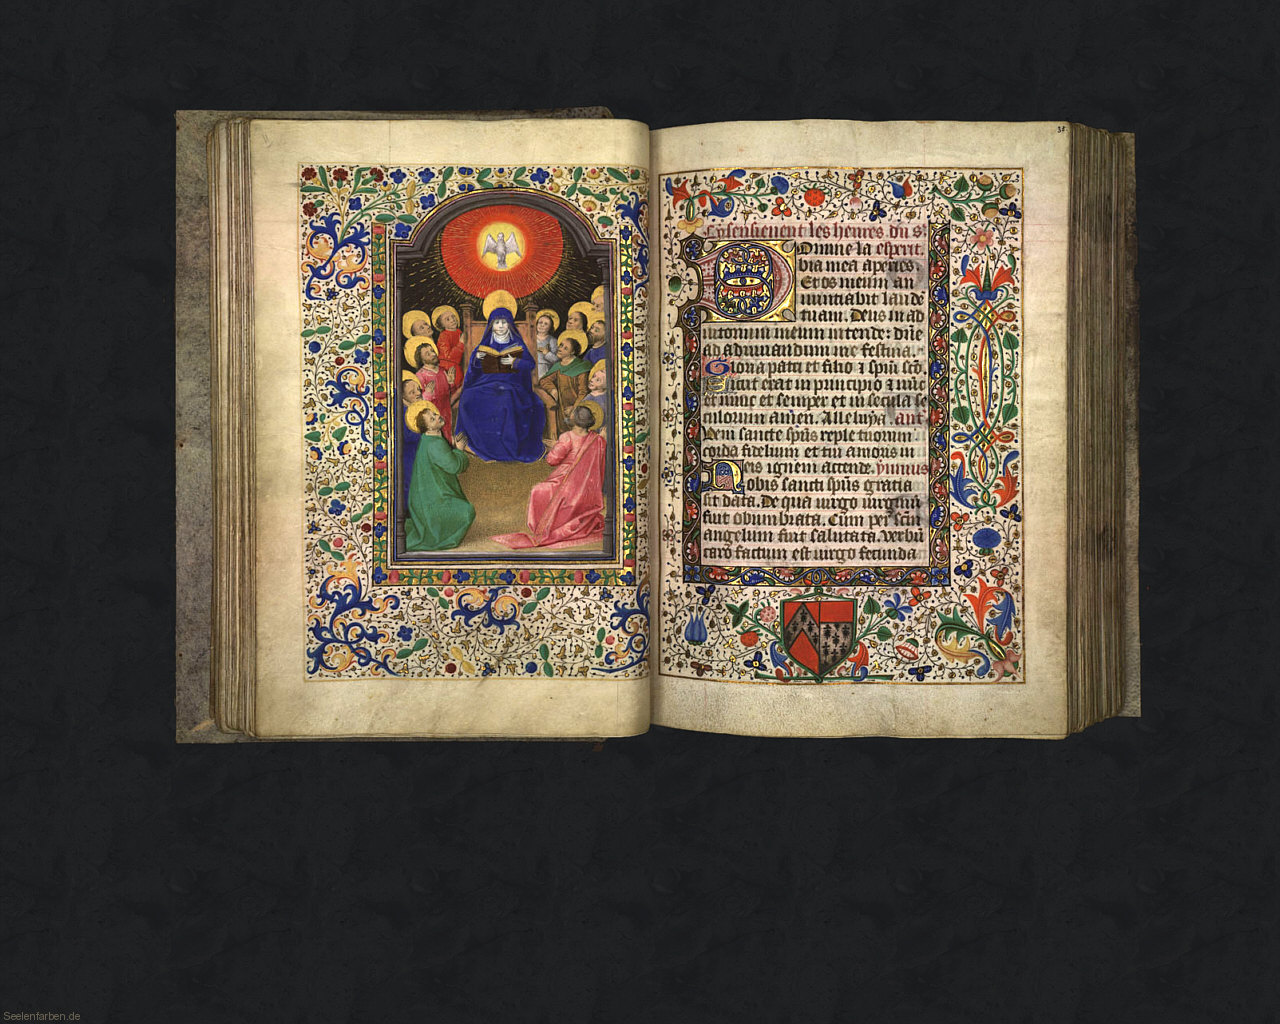 38
Cy sensieuent les heures du st
Domine la esperit.
bia mea aperies.
Et os meum an
nuntiabit laude
tuam. Deus in ad
iutorium meum intende: dñe
ad adiuuandum me festina.
Gloria patri et filio ⁊ spũi scõ.
Sicut erat in principio ⁊ nũc
et nunc et semper et in secula se
culorum amen. Alleluya. ant.
Veni sancte spũs reple tuorum
corda fidelium et tui amoris in
eis ignem accende. ymnus
Nobis sancti spũs gratia
sit data. De qua uirgo uirginũ
fuit obumbrata. Cum per scm
angelum fuit salutata. Verbũ
caro factum est uirgo fecunda
Seelenfarben.de